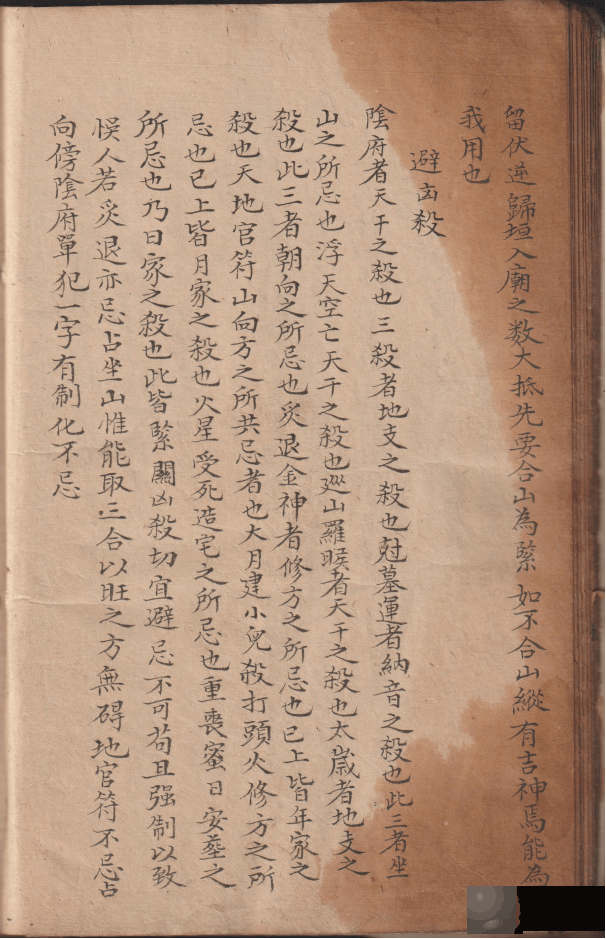 留伏逆歸垣入廟之数大抵先要合山為緊如不合山縱有吉神焉能為
我用也
避凶殺
陰府者天干之殺也三殺者地支之殺也尅墓運者納音之殺也此三者坐
山之所忌也浮天空亡天干之殺也廵山羅睺者天干之殺也太歲者地支之
殺也此三者朝向之所忌也炙退金神者修方之所忌也已上皆年家之
殺也天地官符山向方之所共忌者也大月建小兒殺打頭火修方之所
忌也已上皆月家之殺也火星受死造宅之所忌也重喪蜜日安塟之
所忌也乃日家之殺也此皆緊關凶殺切宜避忌不可苟且强制以致
悮人若炙退亦忌占坐山惟能取三合以旺之方無碍地官符不忌占
向傍陰府單犯一字有制化不忌